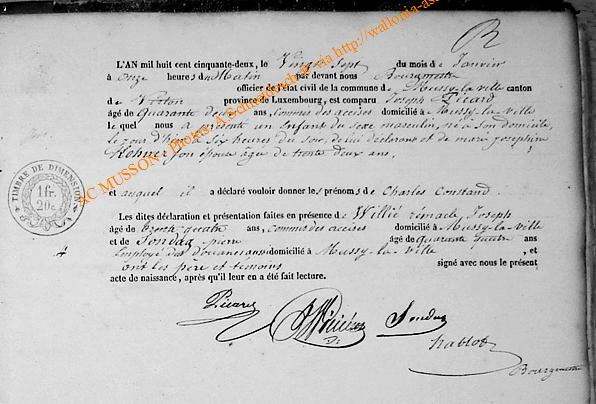 B
L'AN mil huit cent cinquante-deux, le Vingt Sept du mois de Janvier
à onze heures du Matin par devant nous Bourgmestre
officier de l'état civil de la commune de Mussy-la-ville canton
de Virton province de Luxembourg, est comparu Joseph Picard
âgé de Quarante deux ans, Commis des accises domicilié à Mussy-la-Ville
Le quel nous a présenté un Enfant du sexe masculin, né à son domicile,
le jour d'hier à Six heures du Soir, de lui déclarant et de marie josephine
Kohner son épouse âgée de trente deux ans,
et auquel il a déclaré vouloir donner les prénoms de Charles Constand
Les dites déclaration et présentation faites en présence de Willié rémacle Joseph
âgé de trente quatre ans, commis des accises domicilié à Mussy-la-ville
et de Sondag pierre âgé de quarante quatre ans
Employé des douanes domicilié à Mussy-la-Ville, et
ont les père et témoins signé avec nous le présent
acte de naissance, après qu'il leur en a été fait lecture.
TIMBRE DE DIMENSION
1 fr.
20 c.
Picard Sondag
Bourgmestre
AC MUSSON - Photos: A. Schreder via http://wallonia-as